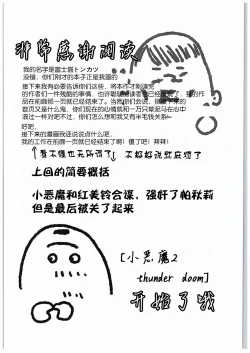 非常感谢阅读
我的名字是富士崩トンカツ
没错，你们刚才的本子正是我画的
接下来我有必要告诉你们这些，将本作才刚读完
的作者们一件残酷的事情，也许聪明的读者
品在前面那一页就已经结束了。当然你们会说，
截页又是什么鬼，你们现在的心情就和一万只草泥马在心中
滚过一样对吧不过，你们怎么想和我又有半毛钱关系
好吧，
接下来的漫画我还说说点什么吧，
我的工作在前面一页就已经结束了啊！傻了吧！拜拜！
↑看不懂也无所谓了↓
上回的简要概括
小恶魔和红美铃合谋，强奸了帕秋莉
但是最后被关了起来
[小恶魔2
thunder doom]
开始了哦